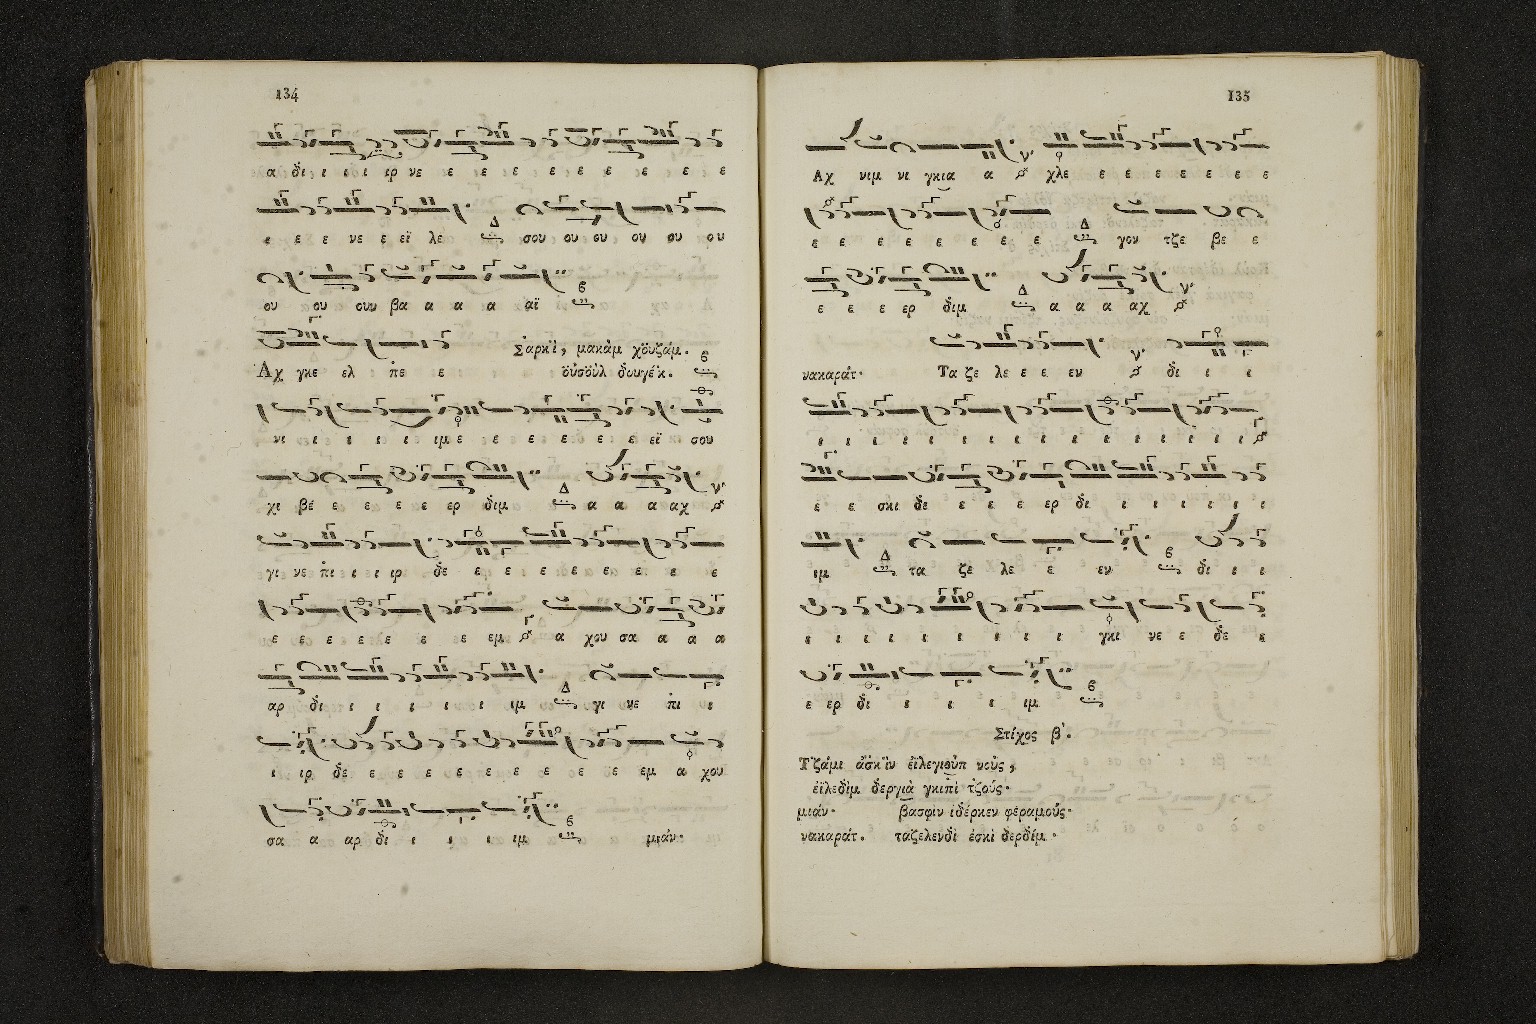 134
α δι ι ι ι ιρ νε ε ε ε ε ε ε ε ε ε ε
ε ε ε νε ε εϊ λε σου ου ου ου ου ου
ου ου ουν βα α α α αϊ
Σαρκὶ, μακὰμ χὀυζάμ.
Αχ γκε ελ πε ε ὀὐσὀὺλ δουγέκ.
νι ι ι ι ι ι ιμ ε ε ε ε ε ε ε εϊ σου
χι βε ε ε ε ε ερ διμ α α α αχ
γι νε πι ι ι ιρ δε ε ε ε ε ε ε ε ε
ε ε ε ε ε ε ε εμ α χου σα α α α
αρ δι ι ι ι ι ι ιμ γι νε πι ι
ι ιρ δε ε ε ε ε ε ε ε ε εμ α χου
σα α αρ δι ι ι ι ιμ μιάν·
135
Αχ νιμ νι γκια α χλε ε ε ε ε ε ε ε
ε ε ε ε ε ε ε ε γον τζε βε ε
ε ε ε ερ διμ α α α αχ
νακαράτ· Τα ζε λε ε ε εν δι ι ι
ι ι ι ι ι ι ι ι ι ι ι ι ι ι ι ι
ε ε σκι δε ε ε ε ερ δι ι ι ι ι ι ι
ιμ τα ζε λε ε εν δι ι ι
ι ι ι ι ι ι ι ι ι γκι νε ε δε ε
ε ερ δι ι ι ι ιμ
Στίχος β΄.
Τζάμι ἀσκὶν ἐϊλεγιοὺπ νοὺς,
ἐϊλεδὶμ δεργιὰ γκιπὶ τζούς·
μιάν· βασφὶν ἰδέρκεν φεραμοὺς·
νακαράτ. ταζελενδὶ ἐσκὶ δερδίμ·